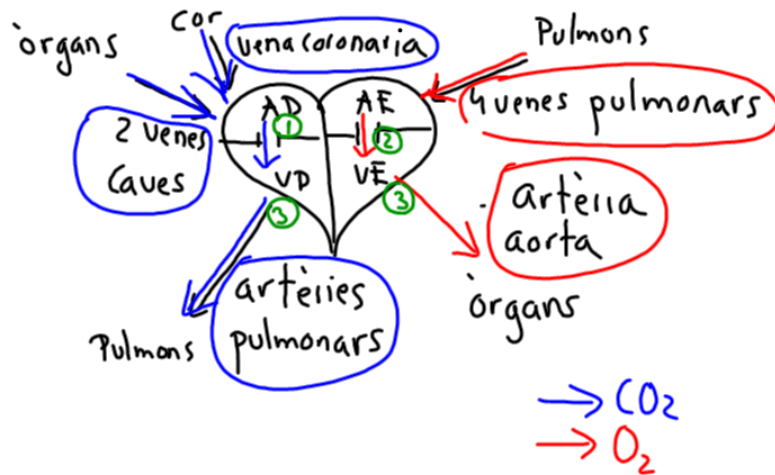 òrgans
cor
vena coronaria
Pulmons
4 venes pulmonars
AD
AE
1
2
2 venes
caves
VD
VE
3
3
artèria
aorta
òrgans
artèries
pulmonars
Pulmons
CO2
O2